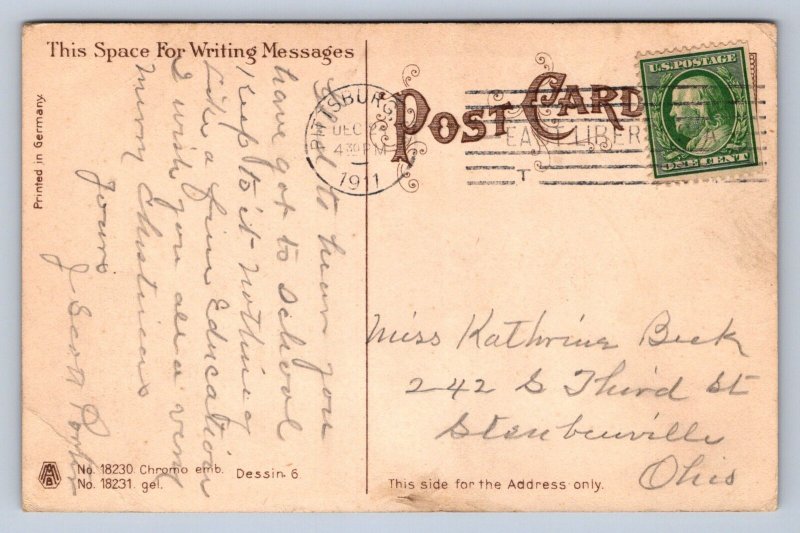 This Space For Writing Messages
POST CARD
U.S. POSTAGE
ONE CENT
PITTSBURG,
DEC 2
4 30 PM
1911
EAST LIBER
T
Printed in Germany.
Glad to hear you
have got to School
Keep to it nothing
Like a fine Education
I wish you all a very
Merry Christmas
yours
J Scott Porter
Miss Kathrine Beck
242 S Third St
Steubenville
Ohio
No. 18230. Chromo emb. Dessin 6
No. 18231. gel.
This side for the Address only.